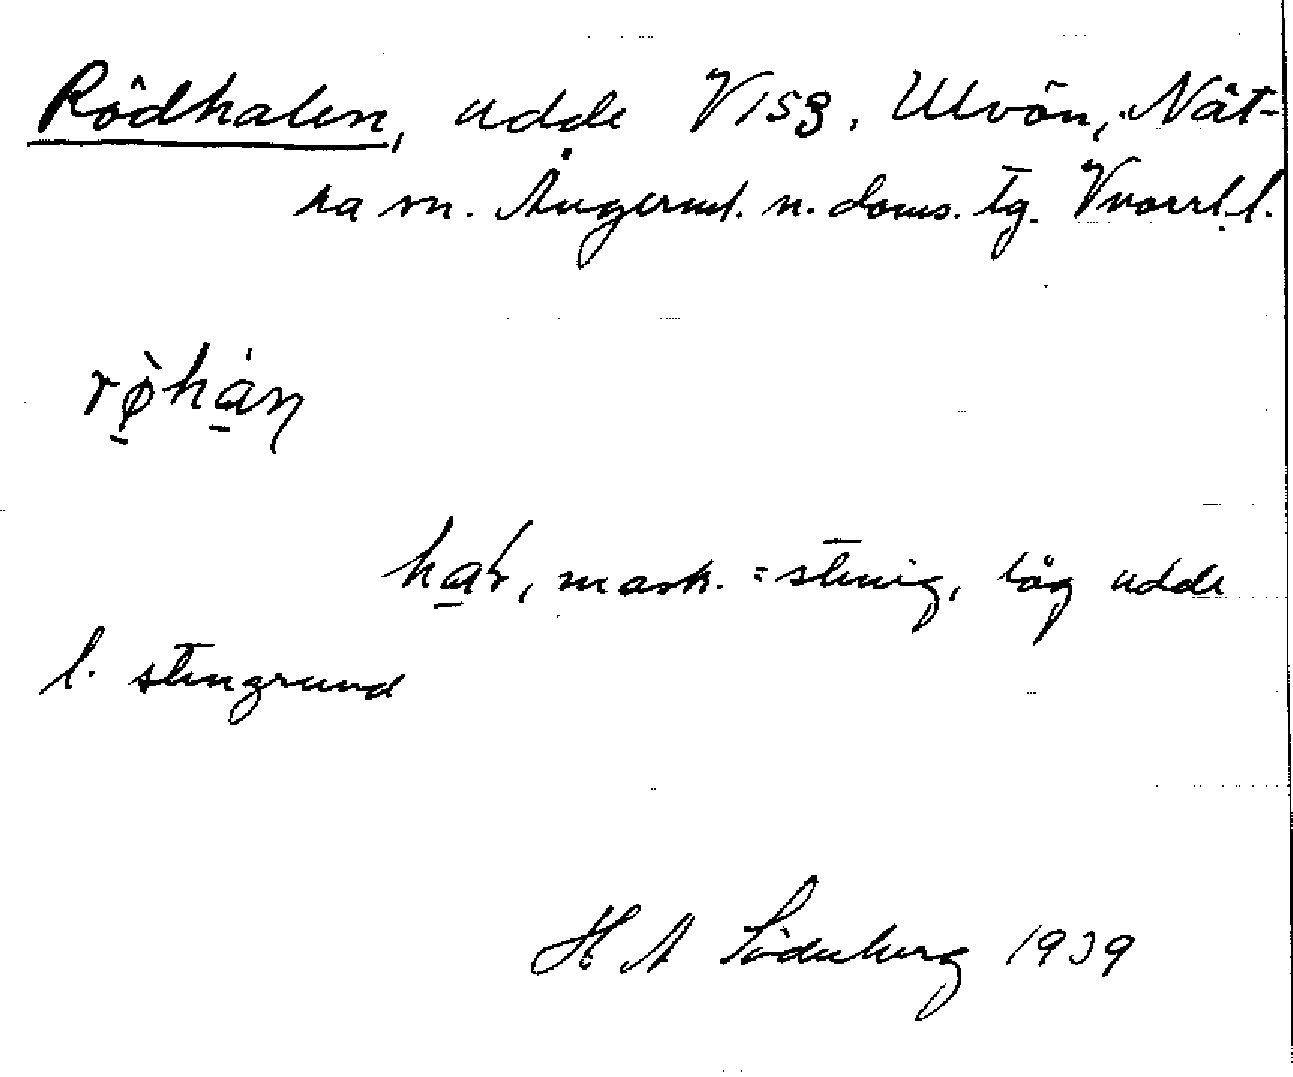 Rödhalen, udde V153, Ulvön, Nät-
ra sn. Ångerml. n. doms. tg. Vnorrl. l.
rø̀hàn
har, mask. = stenig, låg udde
l. stengrund
H A Söderberg 1939